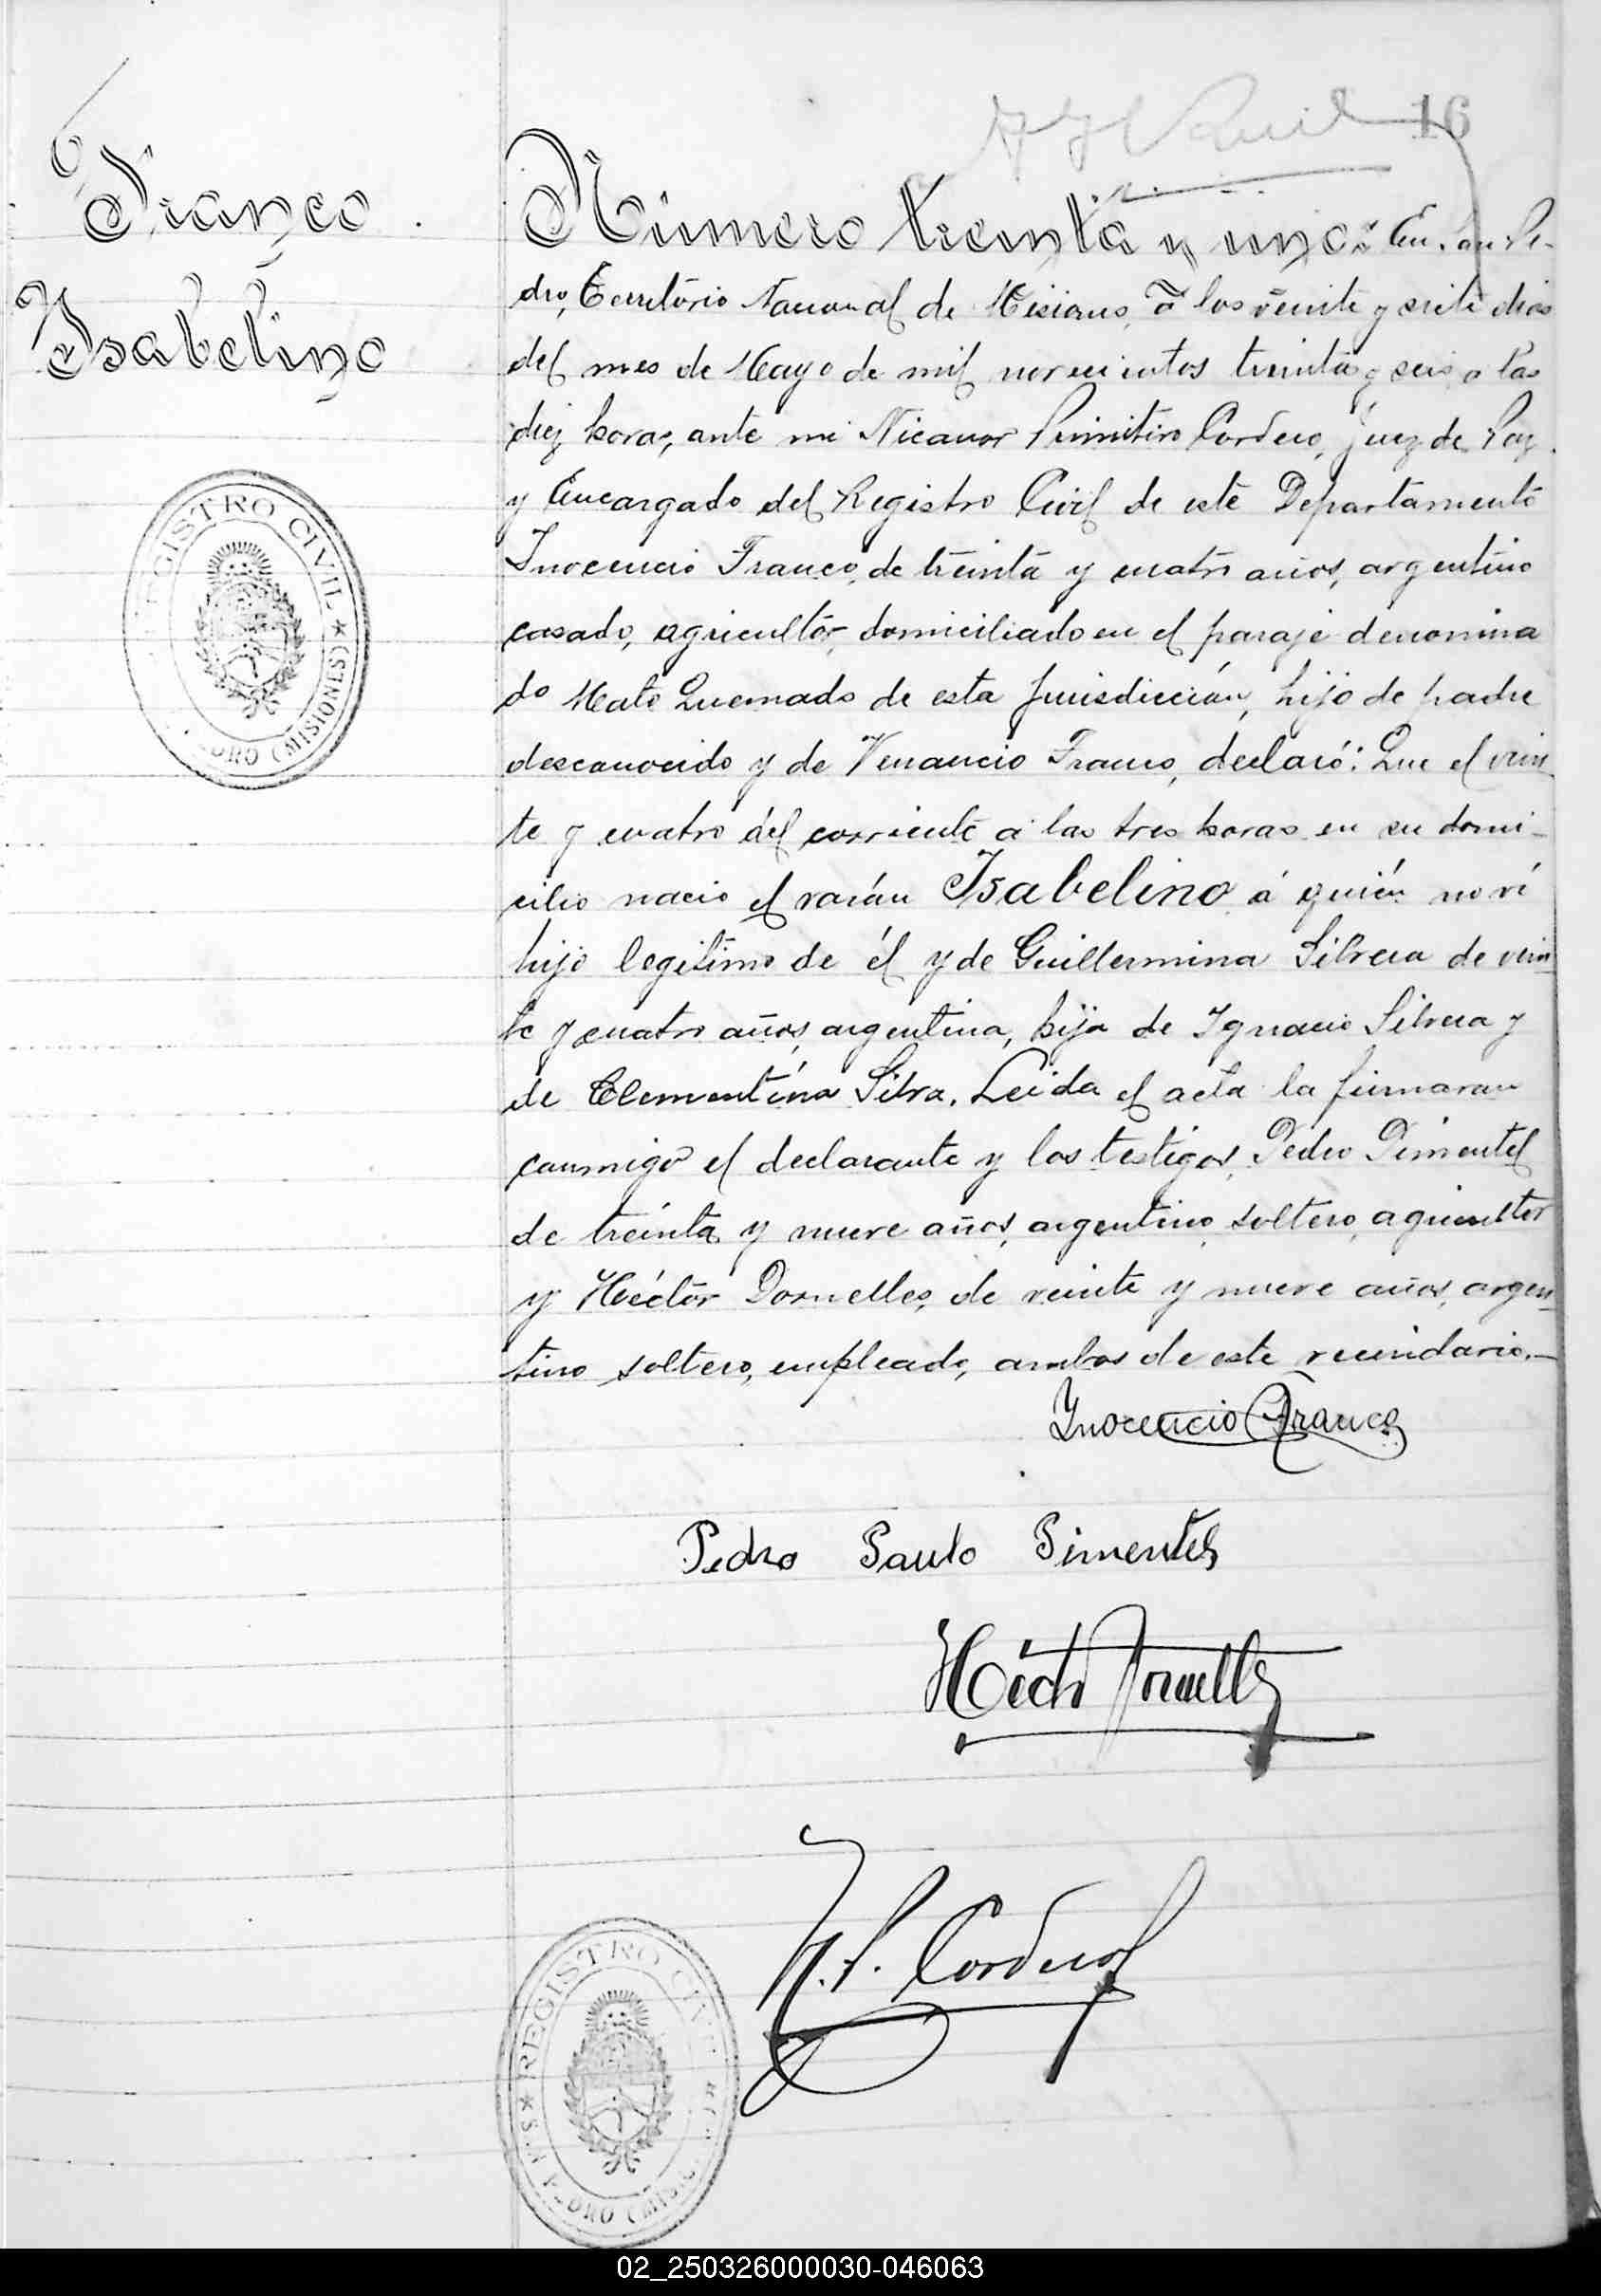 16
Franco
Isabelino
Número treinta y uno: En San Pe-
dro, Territorio Nacional de Misiones, á los veinte y siete dias
del mes de Mayo de mil novecientos treinta y seis a las
diez horas, ante mi Nicanor Primitivo Cordero, Juez de Paz
y Encargado del Registro Civil de este Departamento
Inocencio Franco, de treinta y cuatro años, argentino
casado, agricultor, domiciliado en el paraje denomina
do Mato Quemado de esta Jurisdicción, hijo de padre
desconocido y de Venancio Franco, declaró: Que el vein
te y cuatro del corriente á las tres horas en su domi-
cilio nacio el varón Isabelino á quién no ví
hijo legitimo de él y de Guillermina Silveira de vein
te y cuatro años, argentina, hija de Ignacio Silveira y
de Clementina Silva. Leida el acta la firmaron
conmigo el declarante y los testigos, Pedro Pimentel
de treinta y nueve años, argentino, soltero, agricultor
y Héctor Dornelles, de veinte y nueve años, argen-
tino soltero, empleado, ambos de este vecindario.—
Inocencio Franco
Pedro Paulo Pimentel
Héctor Dornelles
N. P. Cordero
REGISTRO CIVIL
(MISIONES)
REGISTRO CIVIL
02_250326000030-046063